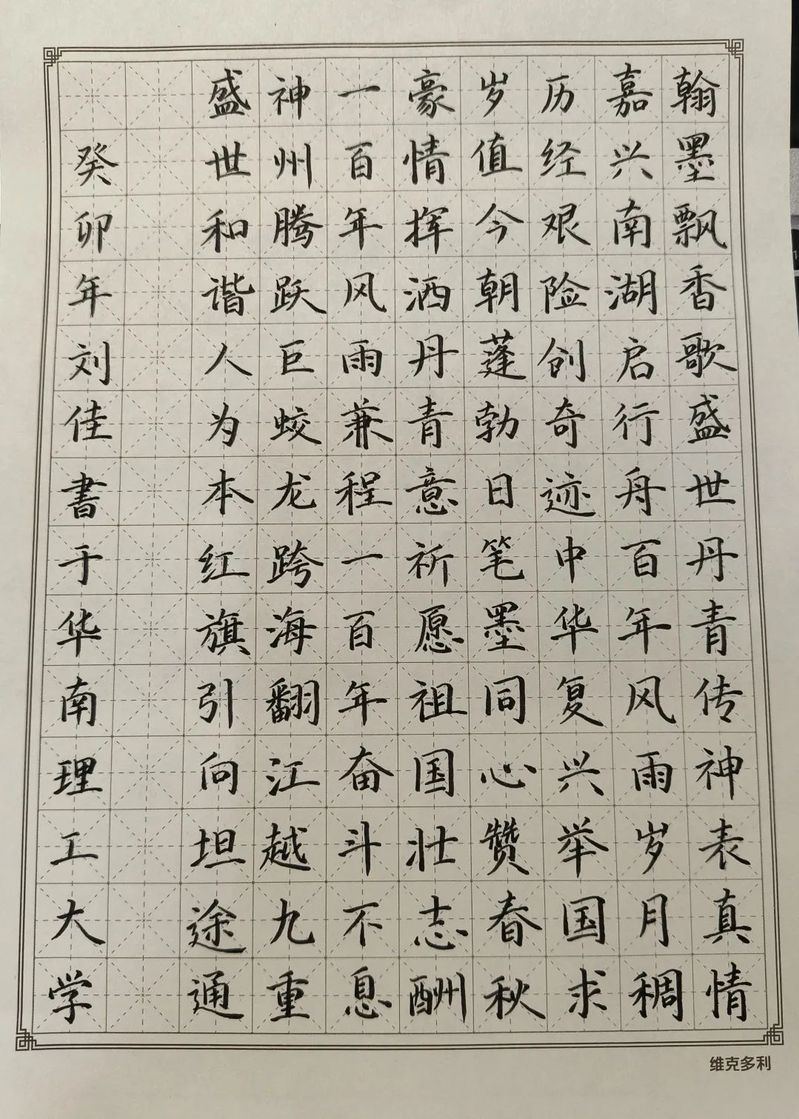 翰墨飘香歌盛世丹青传神表真情
嘉兴南湖启行舟百年风雨岁月稠
历经艰险创奇迹中华复兴举国求
岁值今朝蓬勃日笔墨同心赞春秋
豪情挥洒丹青意祈愿祖国壮志酬
一百年风雨兼程一百年奋斗不息
神州腾跃巨蛟龙跨海翻江越九重
盛世和谐人为本红旗引向坦途通
癸卯年刘佳書于华南理工大学
维克多利